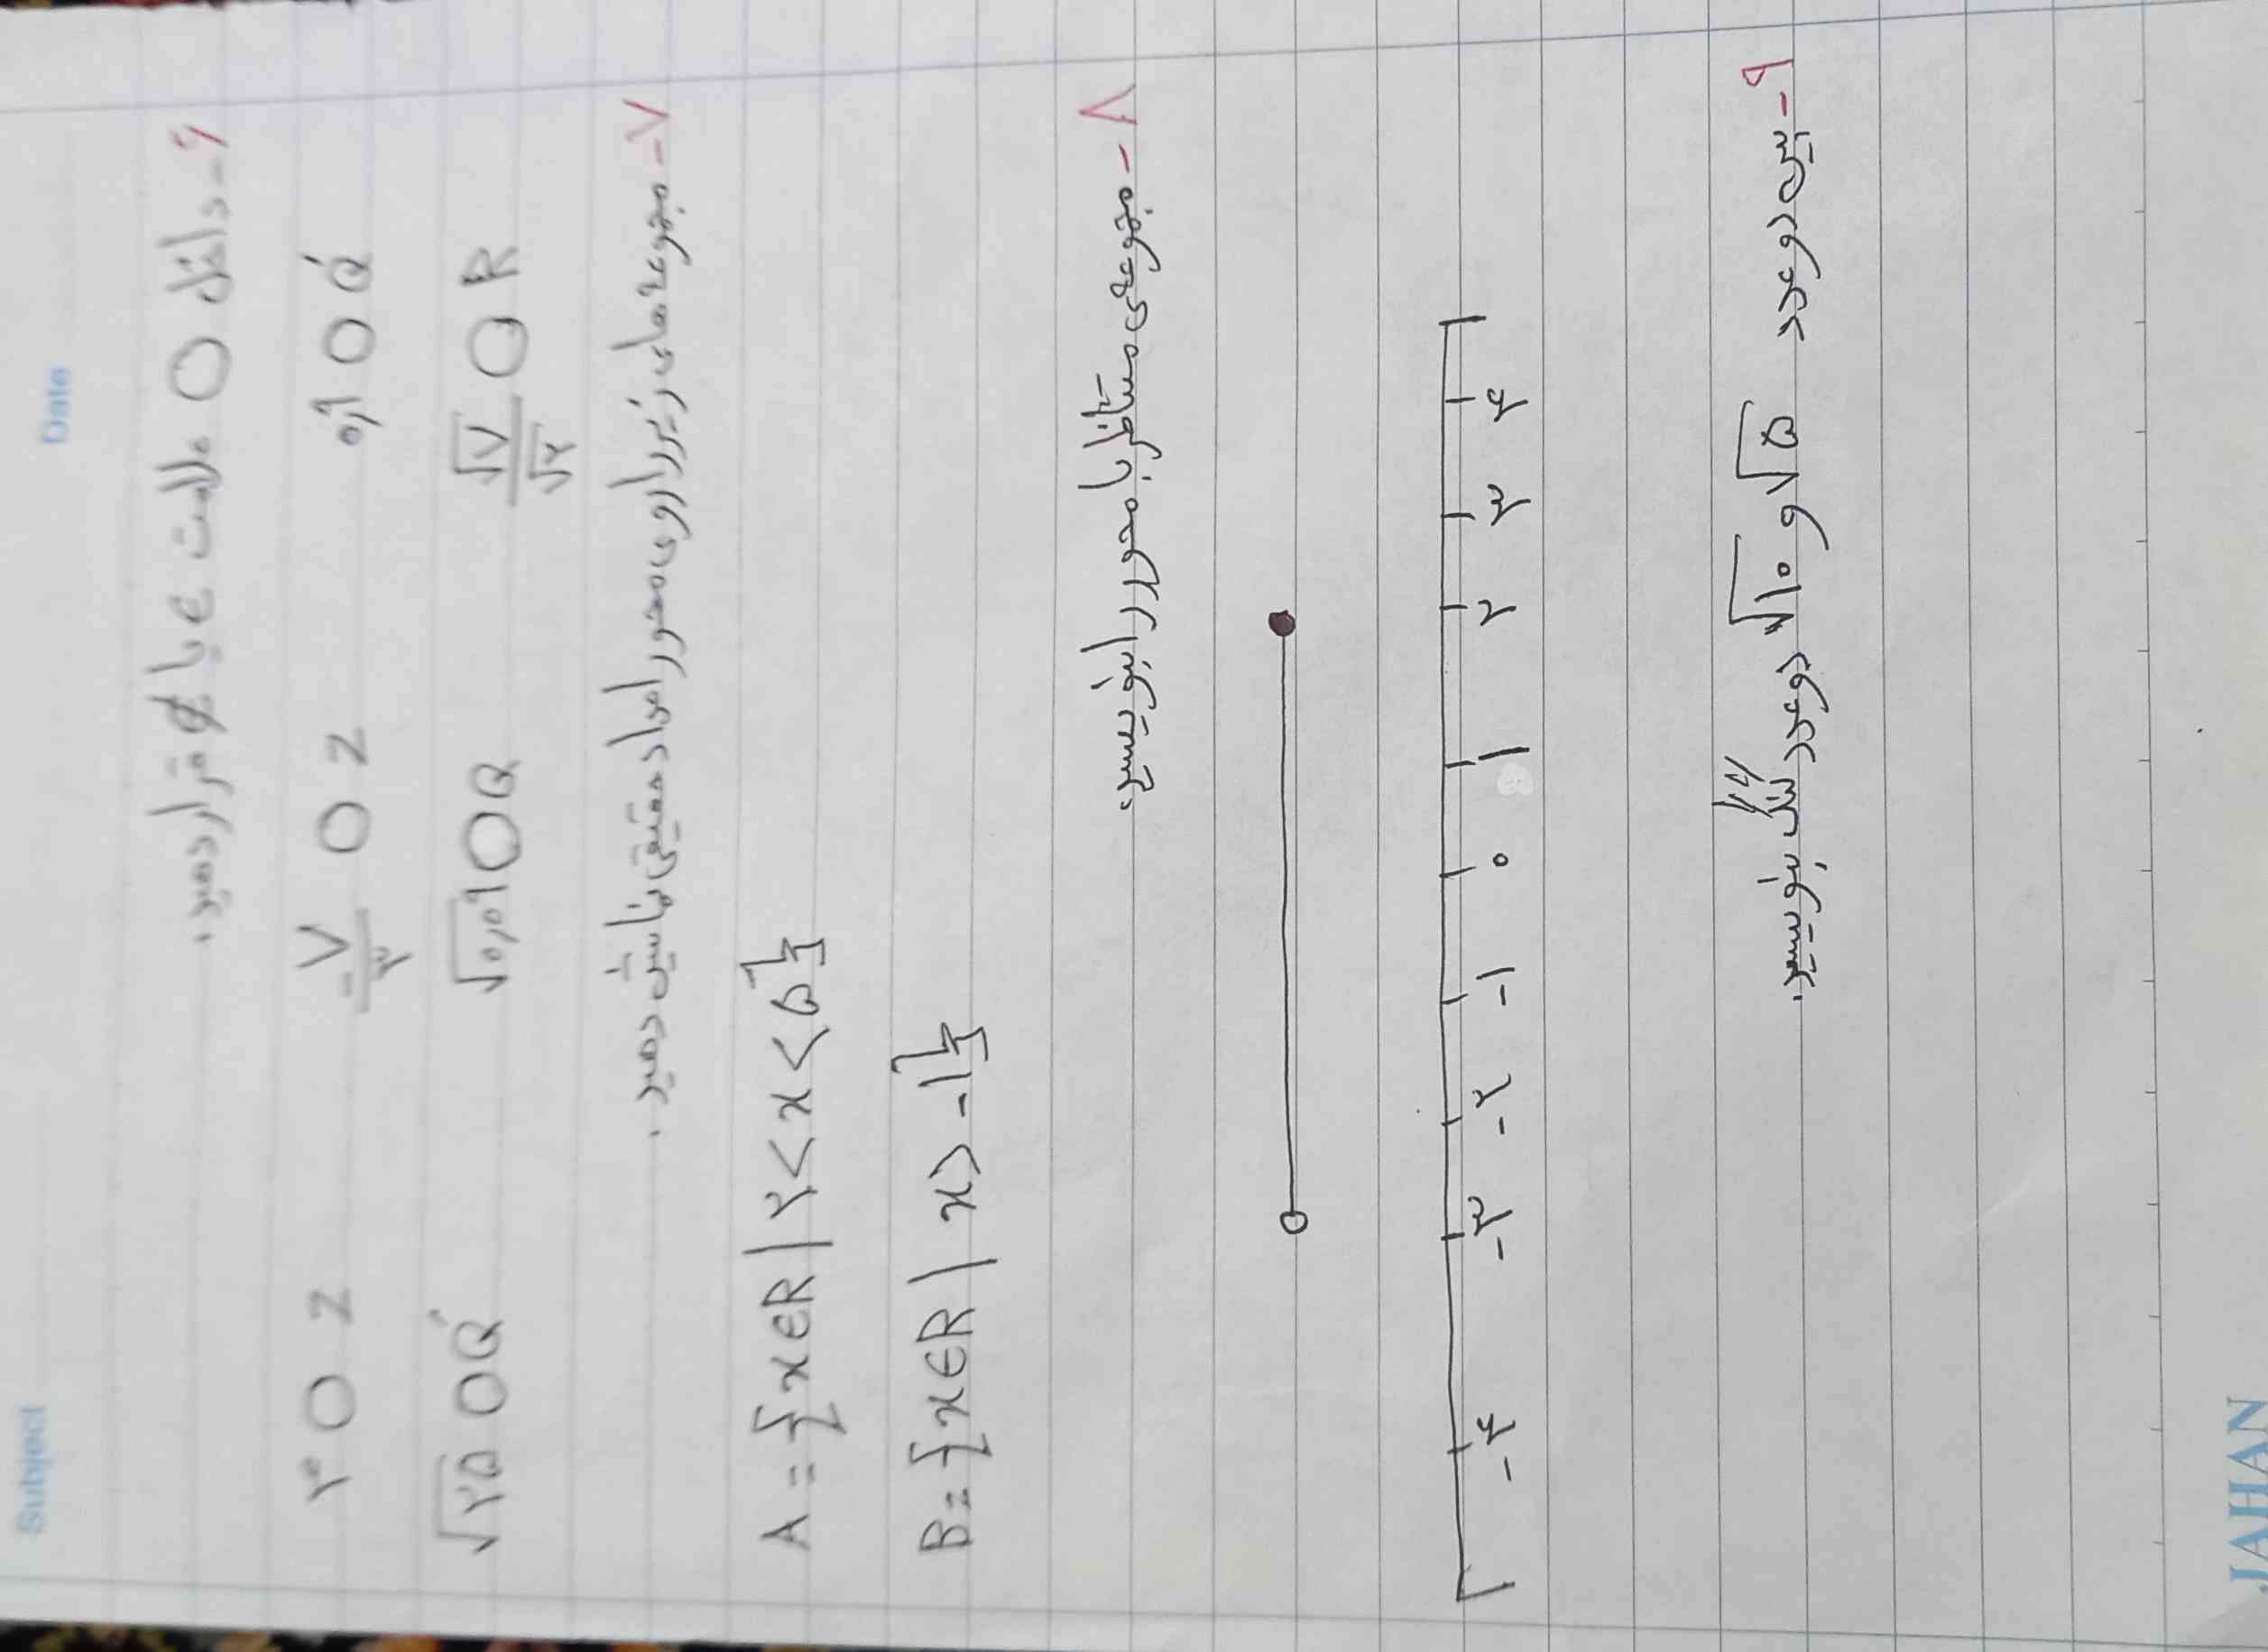 Subject Date
۶- داخل ○ علامت ∈ یا ∉ قرار دهید.
۳ ○ Z -۷/۳ ○ Z ۰٫۹ ○ Q́
√۲۵ ○ Q́ √۰٫۰۹ ○ Q √۷/√۲ ○ R
۷- مجموعه های زیر را روی محور اعداد حقیقی نمایش دهید.
A = {x∈R | ۲ < x < ۵ ۱/۲
B = {x∈R | x > -۱ ۱/۲
۸- مجموعه ی متناظر با محور را بنویسید.
-۴ -۳ -۲ -۱ ۰ ۱ ۲ ۳ ۴
۹- بین دو عدد √۵ و √۱۰ دو عدد گنگ بنویسید.
JAHAN